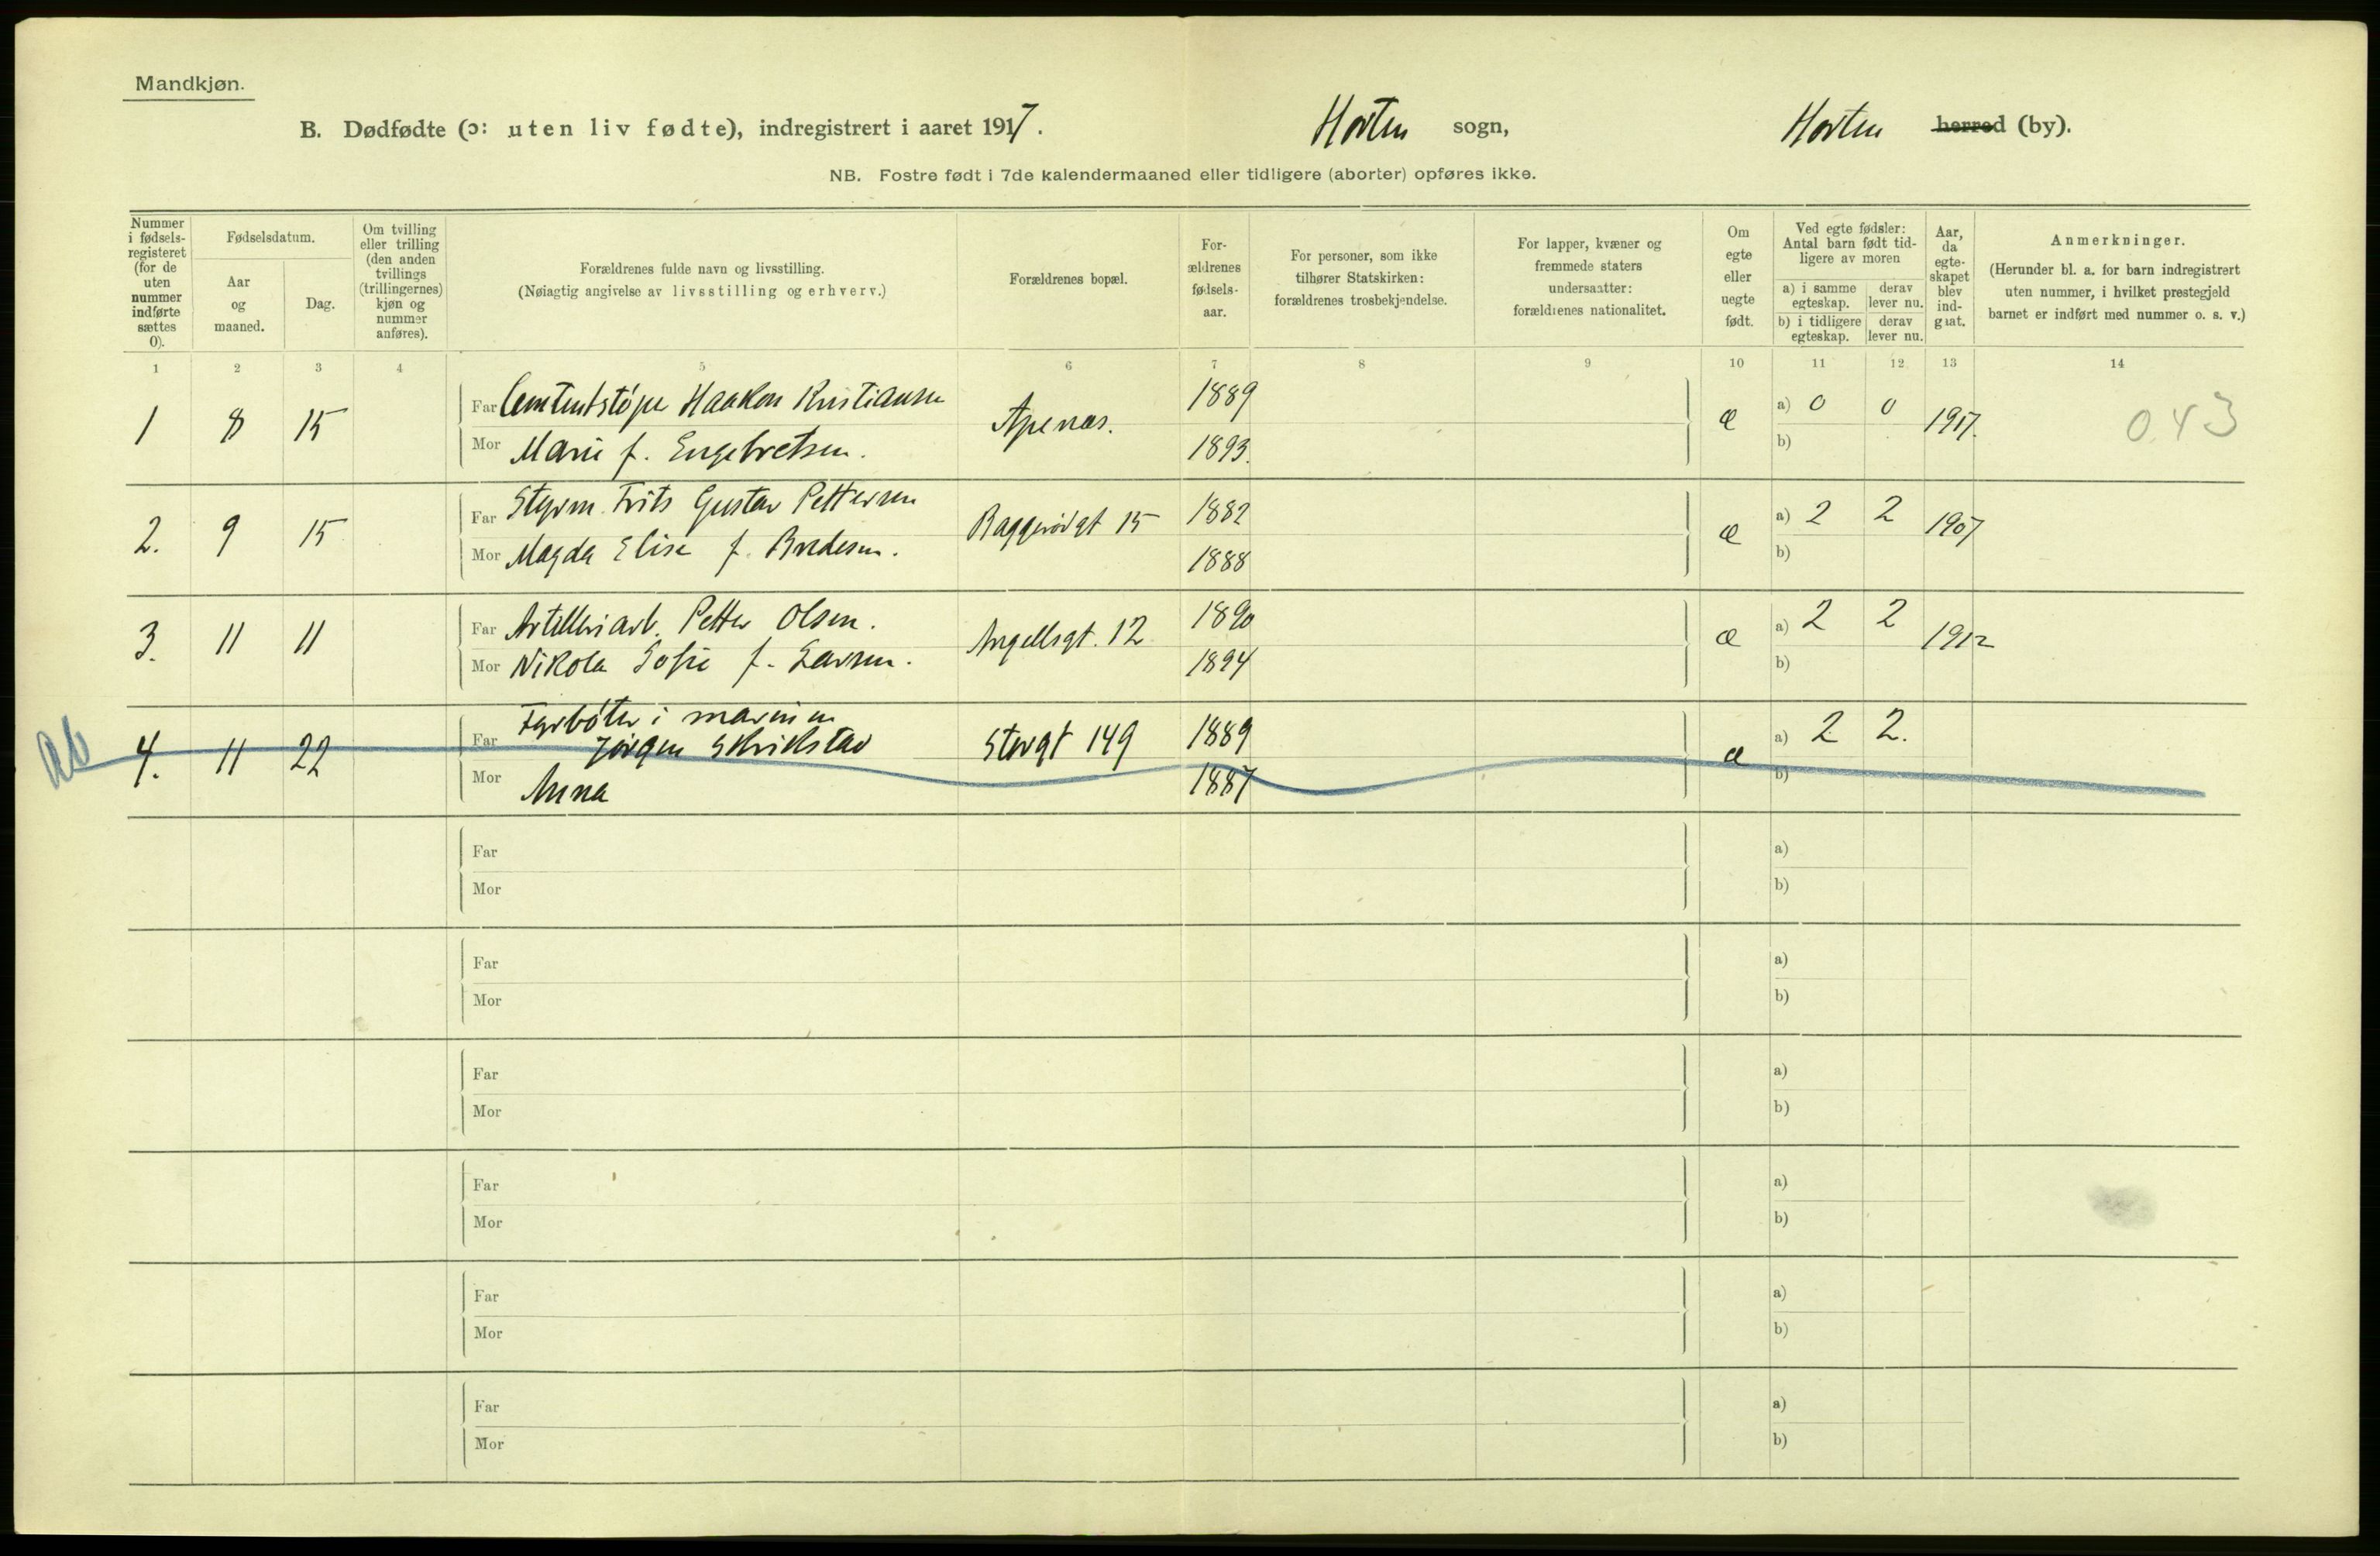 Mandkjøn.
B. Dødfødte (ɔ: uten liv fødte), indregistrert i aaret 1917. Horten sogn, Horten herred (by).
NB. Fostre født i 7de kalendermaaned eller tidligere (aborter) opføres ikke.
Nummer i fødsels-registeret (for de uten nummer indførte sættes 0).
Fødselsdatum.
Aar og maaned.
Dag.
Om tvilling eller trilling (den anden tvillings (trillingernes) kjøn og nummer anføres).
Forældrenes fulde navn og livsstilling.
(Nøiagtig angivelse av livsstilling og erhverv.)
Forældrenes bopæl.
For-ældrenes fødsels-aar.
For personer, som ikke tilhører Statskirken: forældrenes trosbekjendelse.
For lapper, kvæner og fremmede staters undersaatter: forældrenes nationalitet.
Om egte eller uegte født.
Ved egte fødsler: Antal barn født tid-ligere av moren
a) i samme egteskap. derav lever nu.
b) i tidligere egteskap. derav lever nu.
Aar, da egte-skapet blev ind-gaat.
Anmerkninger.
(Herunder bl. a. for barn indregistrert uten nummer, i hvilket prestegjeld barnet er indført med nummer o. s. v.)
1 2 3 4 5 6 7 8 9 10 11 12 13 14
1 8 15 Far Cementstøper Haakon Kristiansen Apenæs. 1889 æ a) 0 0 1917. 0.43
Mor Marie f. Engebretsen. 1893. b)
2. 9 15 Far Styrm. Frits Gustav Pettersen Baggerødgt 15 1882 æ a) 2 2 1907
Mor Magda Elise f. Bredesen. 1888 b)
3. 11 11 Far Artilleriarb. Petter Olsen. Angellsgt. 12 1890 æ a) 2 2 1912
Mor Nikola Sofie f. Larsen. 1894 b)
ab 4. 11 22 Far Fyrbøter i marinen
Jørgen Skrikstad Storgt 149 1889 æ a) 2 2.
Mor Anna 1887 b)
Far a)
Mor b)
Far a)
Mor b)
Far a)
Mor b)
Far a)
Mor b)
Far a)
Mor b)
Far a)
Mor b)